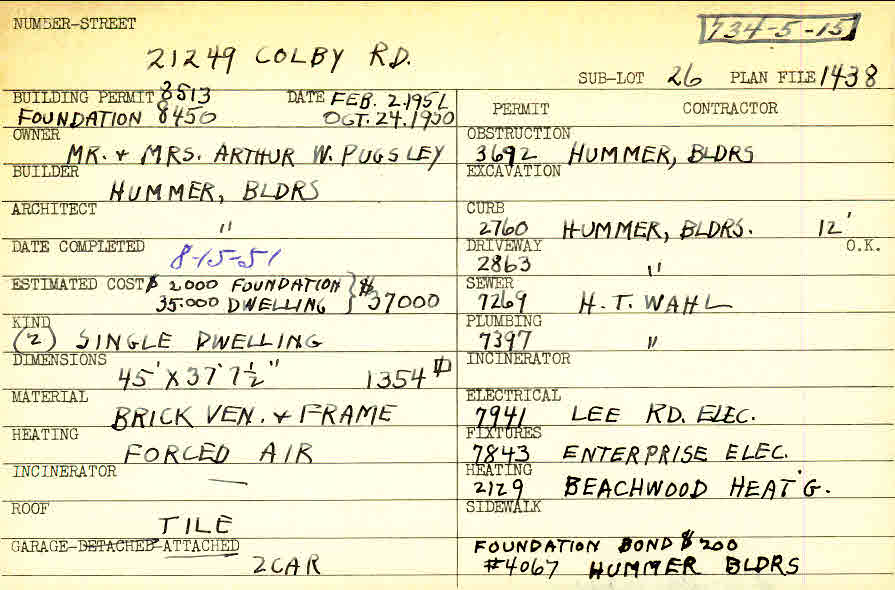 NUMBER-STREET
734-5-15
21249 COLBY RD.
SUB-LOT 26 PLAN FILE 1438
BUILDING PERMIT 8513 DATE FEB. 2.1951
FOUNDATION 8450 OCT. 24.1950
OWNER
MR. & MRS. ARTHUR W. PUGSLEY
BUILDER
HUMMER, BLDRS
ARCHITECT
"
DATE COMPLETED
8-15-51
ESTIMATED COST $ 2000 FOUNDATION
35.000 DWELLING } $ 37000
KIND
(2) SINGLE DWELLING
DIMENSIONS
45' X 37' 7½" 1354
MATERIAL
BRICK VEN. & FRAME
HEATING
FORCED AIR
INCINERATOR
—
ROOF
TILE
GARAGE-DETACHED-ATTACHED
2 CAR
PERMIT CONTRACTOR
OBSTRUCTION
3692 HUMMER, BLDRS
EXCAVATION
CURB
2760 HUMMER, BLDRS. 12'
DRIVEWAY O.K.
2863 "
SEWER
7269 H.T. WAHL
PLUMBING
7397 "
INCINERATOR
ELECTRICAL
7941 LEE RD. ELEC.
FIXTURES
7843 ENTERPRISE ELEC.
HEATING
2129 BEACHWOOD HEAT'G.
SIDEWALK
FOUNDATION BOND $200
#4067 HUMMER BLDRS